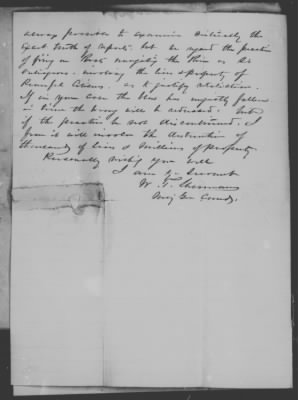 always possible to examine critically the
exact truth of reports but we regard the practice
of firing on Boats navigating the River as so
outrageous, involving the lives & property of
Peaceful Citizens, as to justify retaliation.
If in your case the blow has unjustly fallen
in time the wrong will be redressed. But
if the practice be not discontinued, I
fear it will involve the destruction of
thousands of lives & millions of property
Personally wishing you well
I am yr Servant
W. T. Sherman
Maj Gen Comdg.